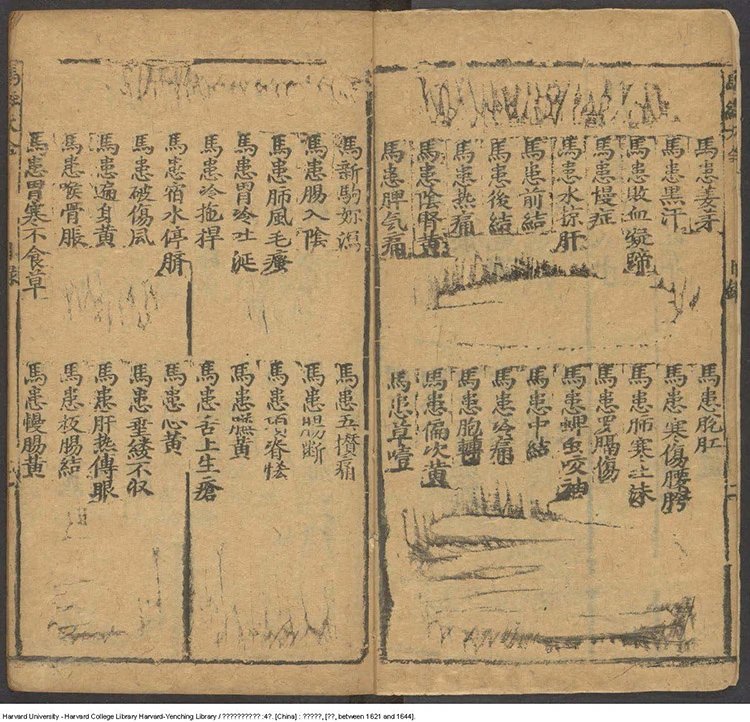 馬患姜芽
馬患黑汗
馬患敗血凝蹄
馬患慢症
馬患水掠肝
馬患前結
馬患後結
馬患热痛
馬患陰腎黃
馬患脾气痛
馬患脫肛
馬患寒傷腰胯
馬患肺寒吐沫
馬患膈傷
馬患虫咬
馬患中結
馬患冷痛
馬患胞轉
馬患偏次黃
馬患草噎
馬新駒奶瀉
馬患腸入陰
馬患肺風毛瘙
馬患胃冷吐涎
馬患冷拖捍
馬患宿水停臍
馬患破傷風
馬患遍身黃
馬患喉骨脹
馬患胃寒不食草
馬患五攢痛
馬患腸断
馬患脊恡
馬患臁黃
馬患舌上生瘡
馬患心黃
馬患垂綾不収
馬患肝热傳眼
馬患板腸結
馬患慢腸黃
目錄
Harvard University - Harvard College Library Harvard-Yenching Library / ?????????? :4?. [China] : ?????, [??, between 1621 and 1644].